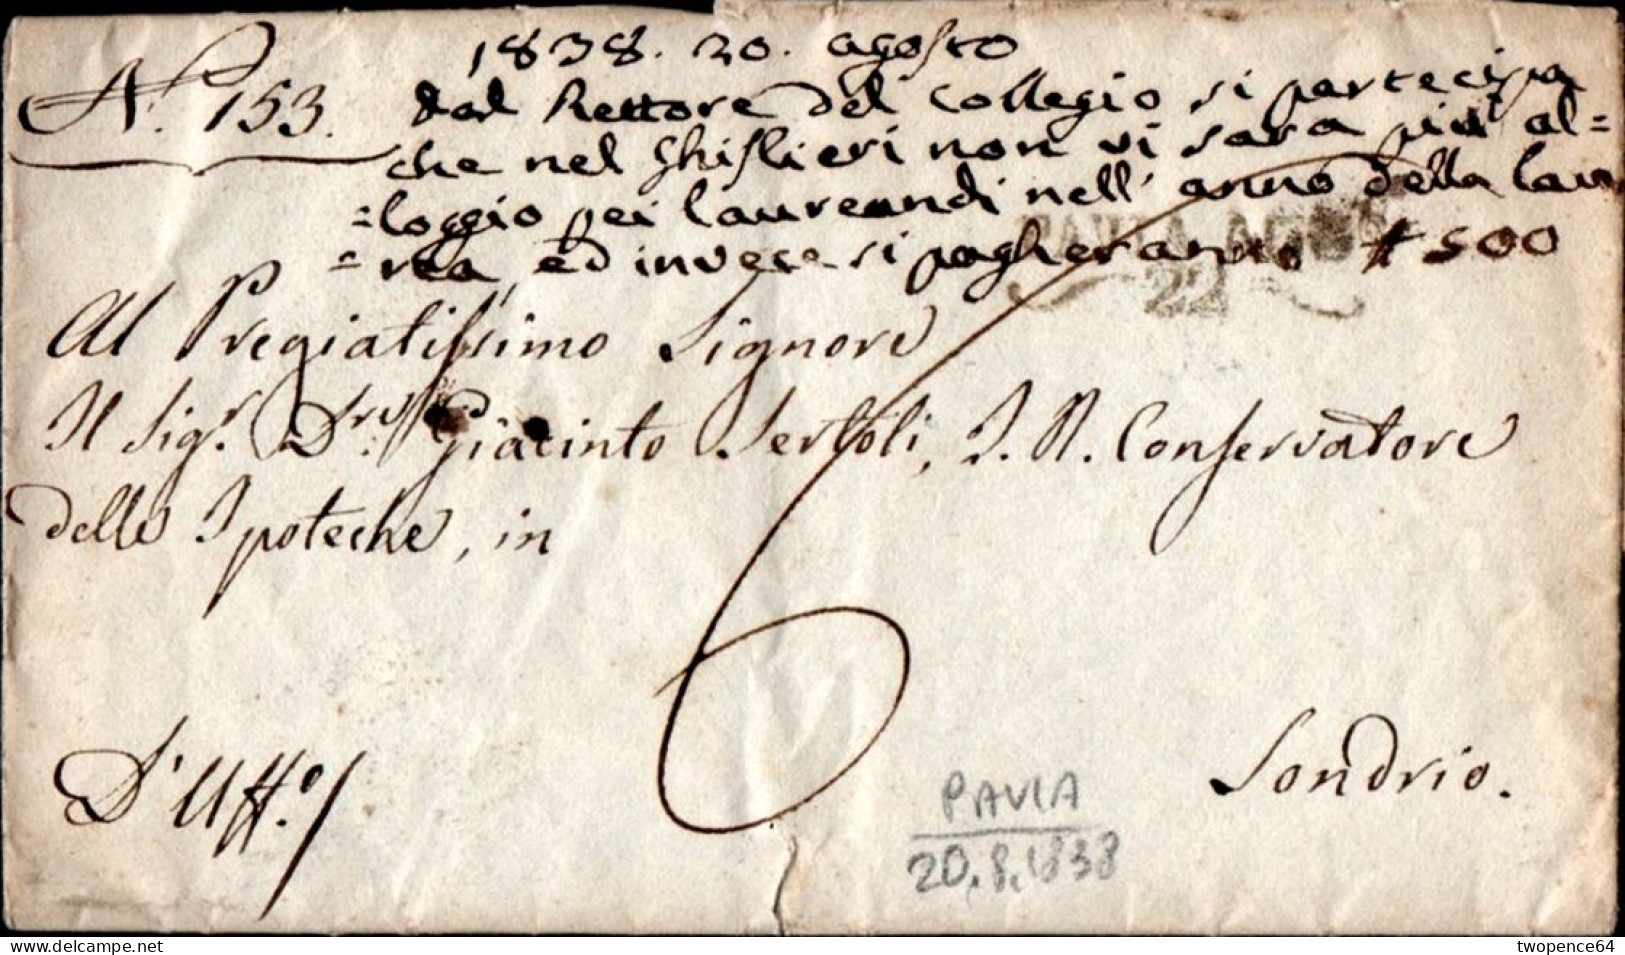 1838. 20. agosto
N.° 153.
dal Rettore del Collegio si partecipa
che nel Ghislieri non vi sara più al=
=loggio pei laureandi nell' anno della lau
=rea, ed invece si pagheranno 500
PAVIA AGO
22
Al Pregiatissimo Signore
Il Sig.r D.r Giacinto Sertoli, I. R. Conservatore
delle Ipoteche, in
6
Sondrio.
D'Uff.o
PAVIA
20.8.1838
delcampe.net
twopence64